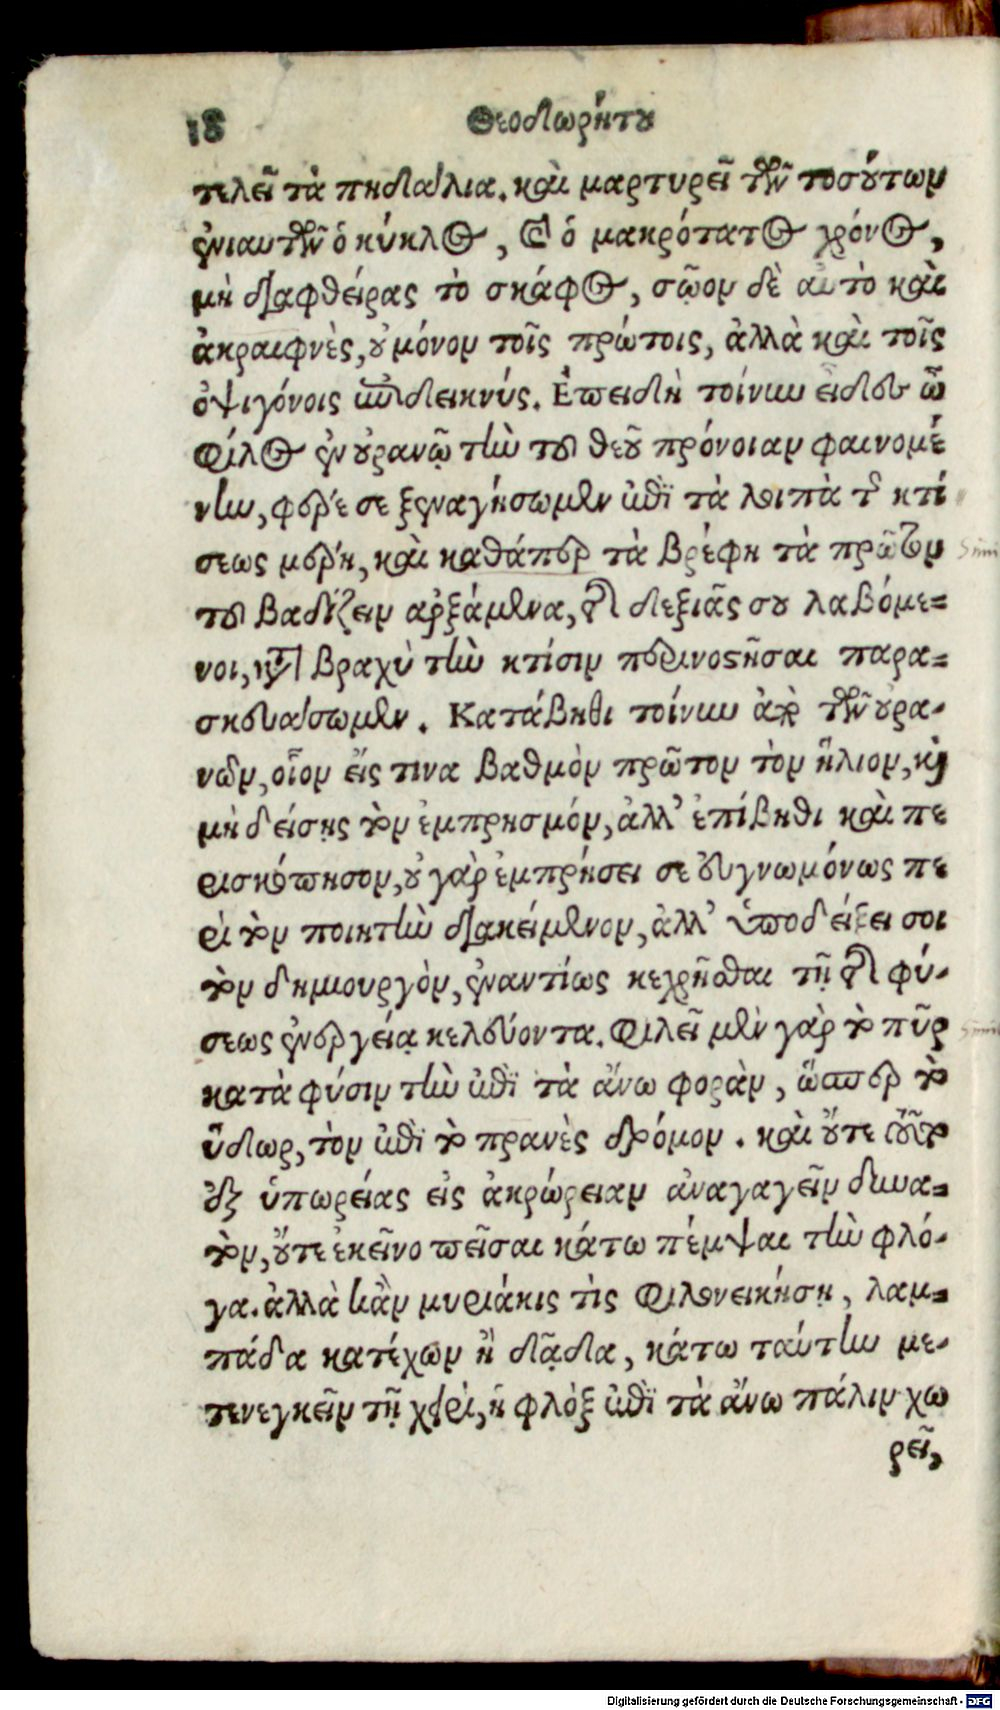 18 Θεοδωρήτου
τελεῖ τὰ πηδάλια. καὶ μαρτυρεῖ τῶν τοσούτων
ἐνιαυτῶν ὁ κύκλος, καὶ ὁ μακρότατος χρόνος,
μὴ διαφθείρας τὸ σκάφος, σῷον δὲ αὐτὸ καὶ
ἀκραιφνὲς, οὐ μόνον τοῖς πρώτοις, ἀλλὰ καὶ τοῖς
ὀψιγόνοις ὑποδεικνύς. Ἐπειδὴ τοίνυν εἶδες ὦ
φίλος ἐν οὐρανῷ τὴν τοῦ θεοῦ πρόνοιαν φαινομέ
νην, φέρε σε ξεναγήσωμεν ἐπὶ τὰ λοιπὰ τῆς κτί
σεως μέρη, καὶ καθάπερ τὰ βρέφη τὰ πρῶτον
τοῦ βαδίζειν ἀρξάμενα, τῆς δεξιᾶς σου λαβόμε=
νοι, κατὰ βραχὺ τὴν κτίσιν περινοστῆσαι παρα=
σκευάσωμεν. Κατάβηθι τοίνυν ἀπὸ τῶν οὐρα-
νῶν, οἷον εἴς τινα βαθμὸν πρῶτον τὸν ἥλιον, καὶ
μὴ δείσῃς τὸν ἐμπρησμόν, ἀλλ' ἐπίβηθι καὶ πε
ρισκόπησον, οὐ γὰρ ἐμπρήσει σε εὐγνωμόνως πε
ρὶ τὸν ποιητὴν διακείμενον, ἀλλ' ὑποδείξει σοι
τὸν δημιουργὸν, ἐναντίως κεχρῆσθαι τῇ τῆς φύ-
σεως ἐνεργείᾳ κελεύοντα. Φιλεῖ μὲν γὰρ τὸ πῦρ
κατὰ φύσιν τὴν ἐπὶ τὰ ἄνω φορὰν, ὥσπερ τὸ
ὕδωρ, τὸν ἐπὶ τὸ πρανὲς δρόμον. καὶ οὔτε τοῦτο
ἐξ ὑπωρείας εἰς ἀκρώρειαν ἀναγαγεῖν δυνα=
τὸν, οὔτε ἐκεῖνο πεῖσαι κάτω πέμψαι τὴν φλό-
γα. ἀλλὰ κἂν μυριάκις τὶς φιλονεικήσῃ, λαμ=
πάδα κατέχων ἢ δᾷδα, κάτω ταύτην με-
τενεγκεῖν τῇ χειρὶ, ἡ φλὸξ ἐπὶ τὰ ἄνω πάλιν χω
ρεῖ,
Digitalisierung gefördert durch die Deutsche Forschungsgemeinschaft - DFG